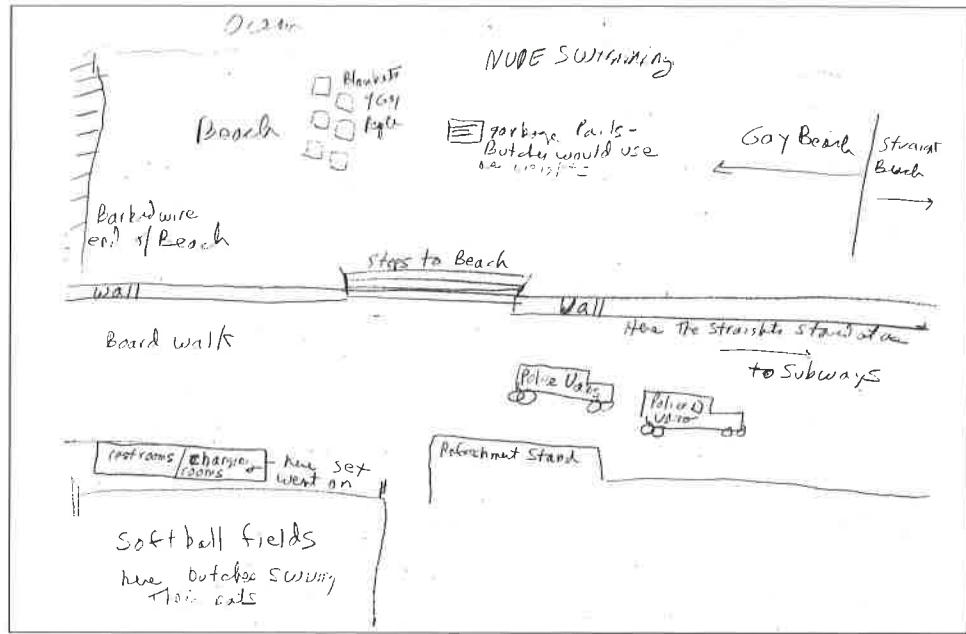 Ocean
NUDE SWIMMING
Blankets
of Gay
People
Beach
garbage Pails-
Butches would use
as weights
Gay Beach
straight
Beach
Barbed wire
end of Beach
Steps to Beach
Wall
Wall
Here The Straights Stared at us
to Subways
Board walk
Police Vans
Police
Vans
restrooms / Changing
rooms
here sex
went on
Refreshment Stand
Softball fields
here butches swung
their bats